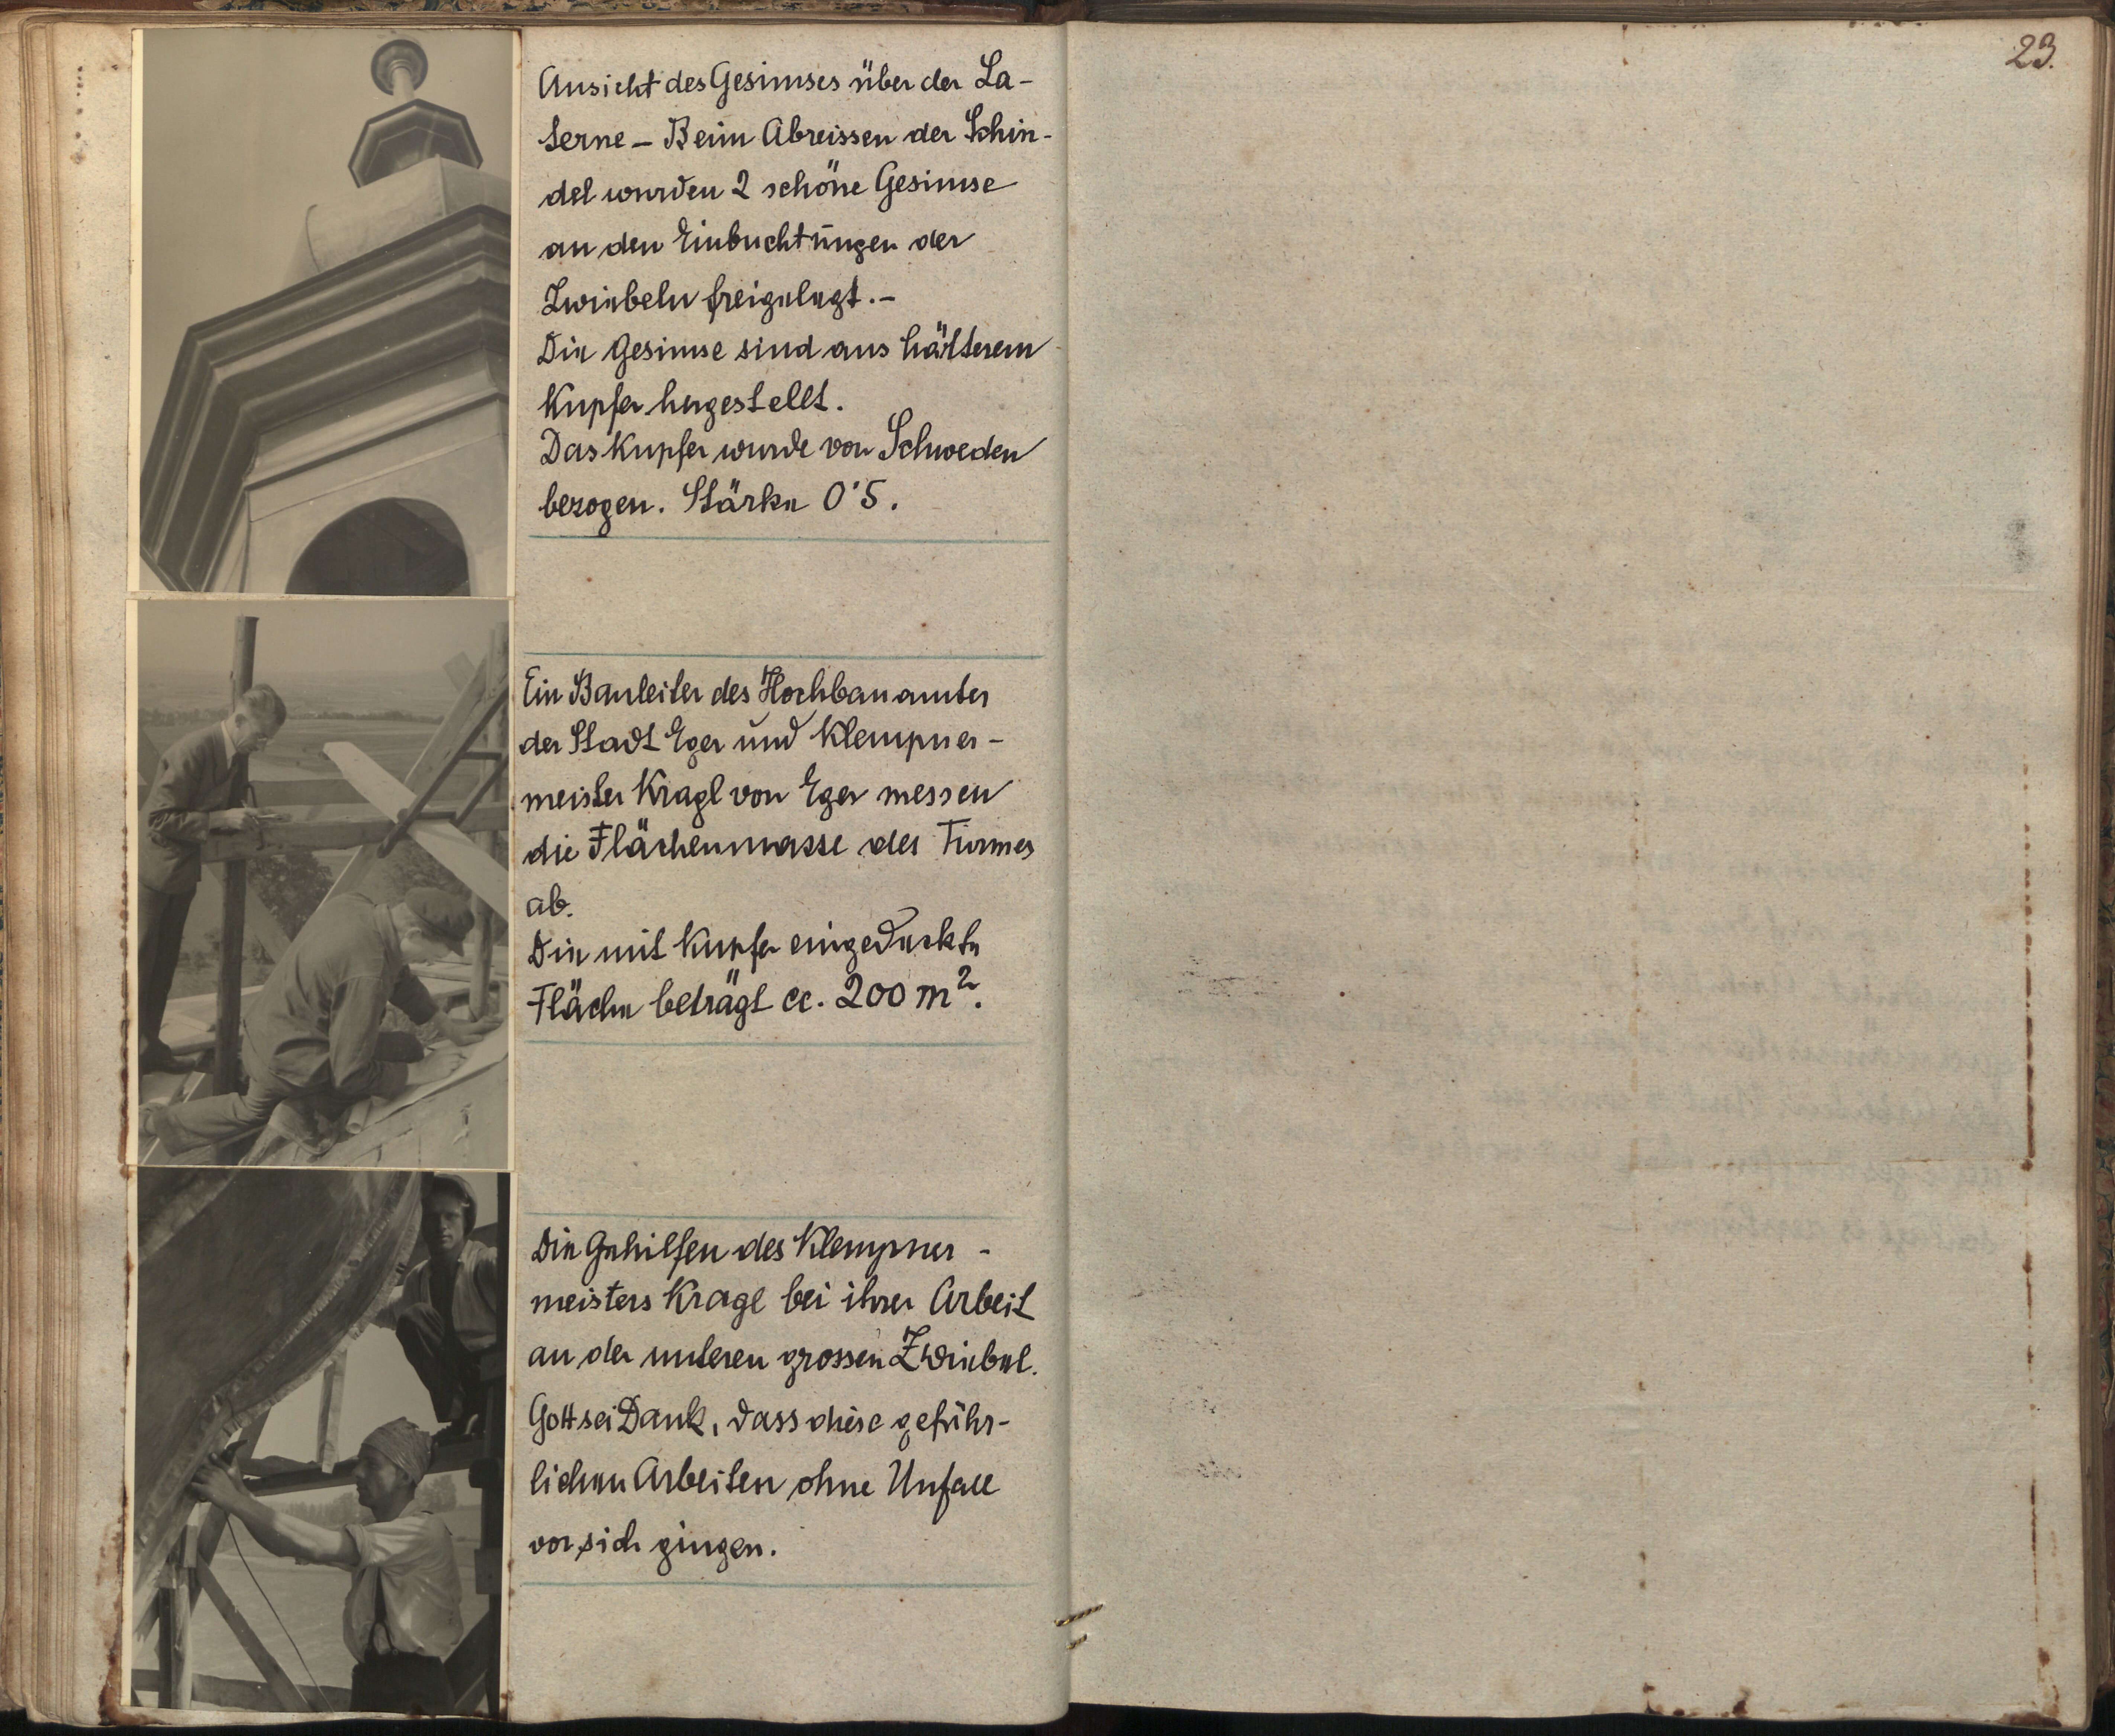 Ansicht des Gesimses über der La-
terne – Beim Abreissen der Schin-
del wurden 2 schöne Gesimse
an den Einbuchtungen der
Zwiebeln freigelegt.–
Die Gesimse sind aus härterem
Kupfer hergestellt.
Das Kupfer wurde von Schweden
bezogen. Stärke 0'5.
Ein Bauleiter des Hochbauamtes
der Stadt Eger und Klempner-
meister Kragl von Eger messen
die Flächenmasse des Turmes
ab.
Die mit Kupfer eingedeckte
Fläche beträgt cc. 200 m².
Die Gehilfen des Klempner-
meisters Kragl bei ihrer Arbeit
an der unteren grossen Zwiebel.
Gott sei Dank, dass diese gefähr-
lichen Arbeiten ohne Unfall
vor sich gingen.
23.